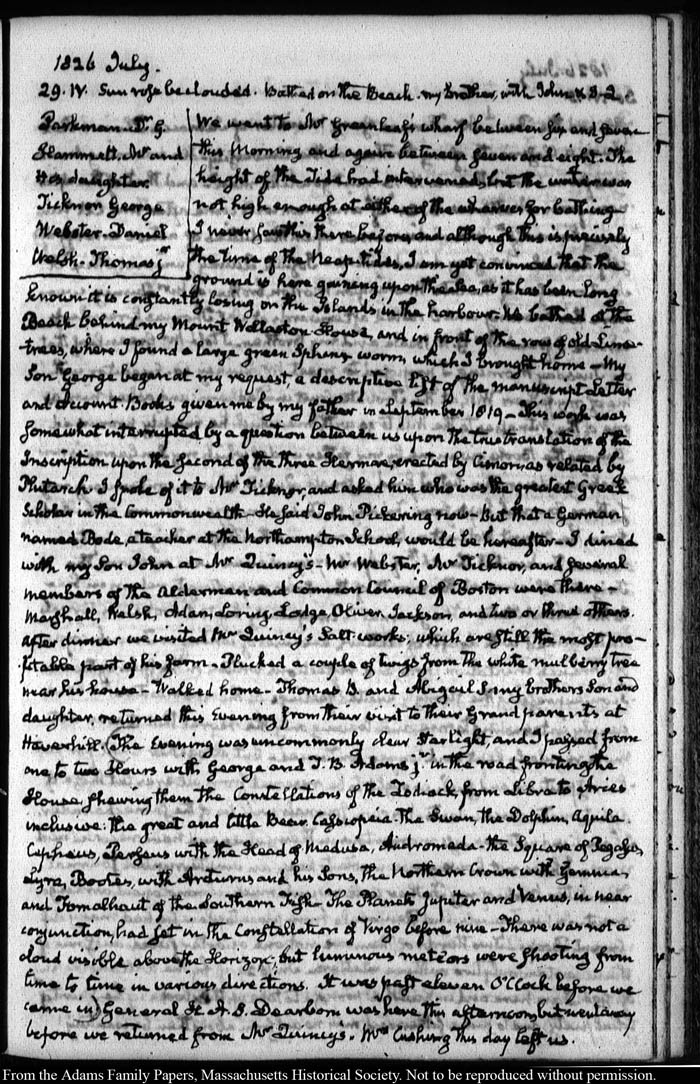 1826 July.
29. IV. Sun rose beclouded. Bathed on the Beach. my brother, with John & S. Q.
Parkman. Dr. G.
Hammatt. Mr and
His daughter.
Ticknor George
Webster. Daniel
Welsh. Thomas jr
We went to Mr Greenleaf's wharf between six and seven
this Morning and again between seven and eight. The
height of the Tide had intervened, but the water was
not high enough at either of the wharves for bathing
I never saw this there before, and although this is precisely
the time of the Neap-tides, I am yet convinced that the
ground is here gaining upon the sea, as it has been long
known it is constantly losing on the Islands in the harbour. We bathed at the
Beach behind my Mount Wollaston House, and in front of the row of old Lime-
trees, where I found a large green Sphinx worm, which I brought home — My
Son George began at my request, a descriptive list of the manuscript Letter
and Account Books given me by my father in September 1819 — This work was
somewhat interrupted by a question between us upon the true translation of the
Inscription upon the second of the three Hermae, erected by Cimon, as related by
Plutarch. I spoke of it to Mr Ticknor, and asked him who was the greatest Greek
Scholar in the Commonwealth — He said John Pickering now — But that a German
named Bode, a teacher at the Northampton School, would be hereafter — I dined
with my Son John at Mr Quincy's — Mr Webster, Mr Ticknor, and several
members of the Alderman and Common Council of Boston were there —
Marshall, Welsh, Adan, Loring, Lodge, Oliver, Jackson, and two or three others.
After dinner we visited Mr Quincy's Salt works; which are still the most pro-
fitable part of his farm. Plucked a couple of twigs from the white mulberry tree
near his house — Walked home — Thomas B. and Abigail S. my brothers Son and
daughter, returned this Evening from their visit to their Grand parents at
Haverhill. (The Evening was uncommonly clear Starlight, and I passed from
one to two Hours with George and T. B. Adams jr in the road fronting the
House, shewing them the Constellations of the Zodiack, from Libra to Aries
inclusive: the great and little Bear. Cassiopeia. the Swan, the Dolphin, Aquila.
Cepheus, Perseus with the Head of Medusa, Andromeda. the Square of Pegasus,
Lyra, Bootes, with Arcturus and his Sons, the Northern Crown with Gemma,
and Fomalhaut of the Southern Fish — The Planets Jupiter and Venus, in near
conjunction, had set in the Constellation of Virgo before nine — There was not a
cloud visible above the Horizon, but luminous meteors were shooting from
time to time in various directions. It was past eleven O'Clock before we
came in) General H. A. S. Dearborn was here this afternoon, but went away
before we returned from Mr Quincy's. Mrs Cushing this day left us.
From the Adams Family Papers, Massachusetts Historical Society. Not to be reproduced without permission.